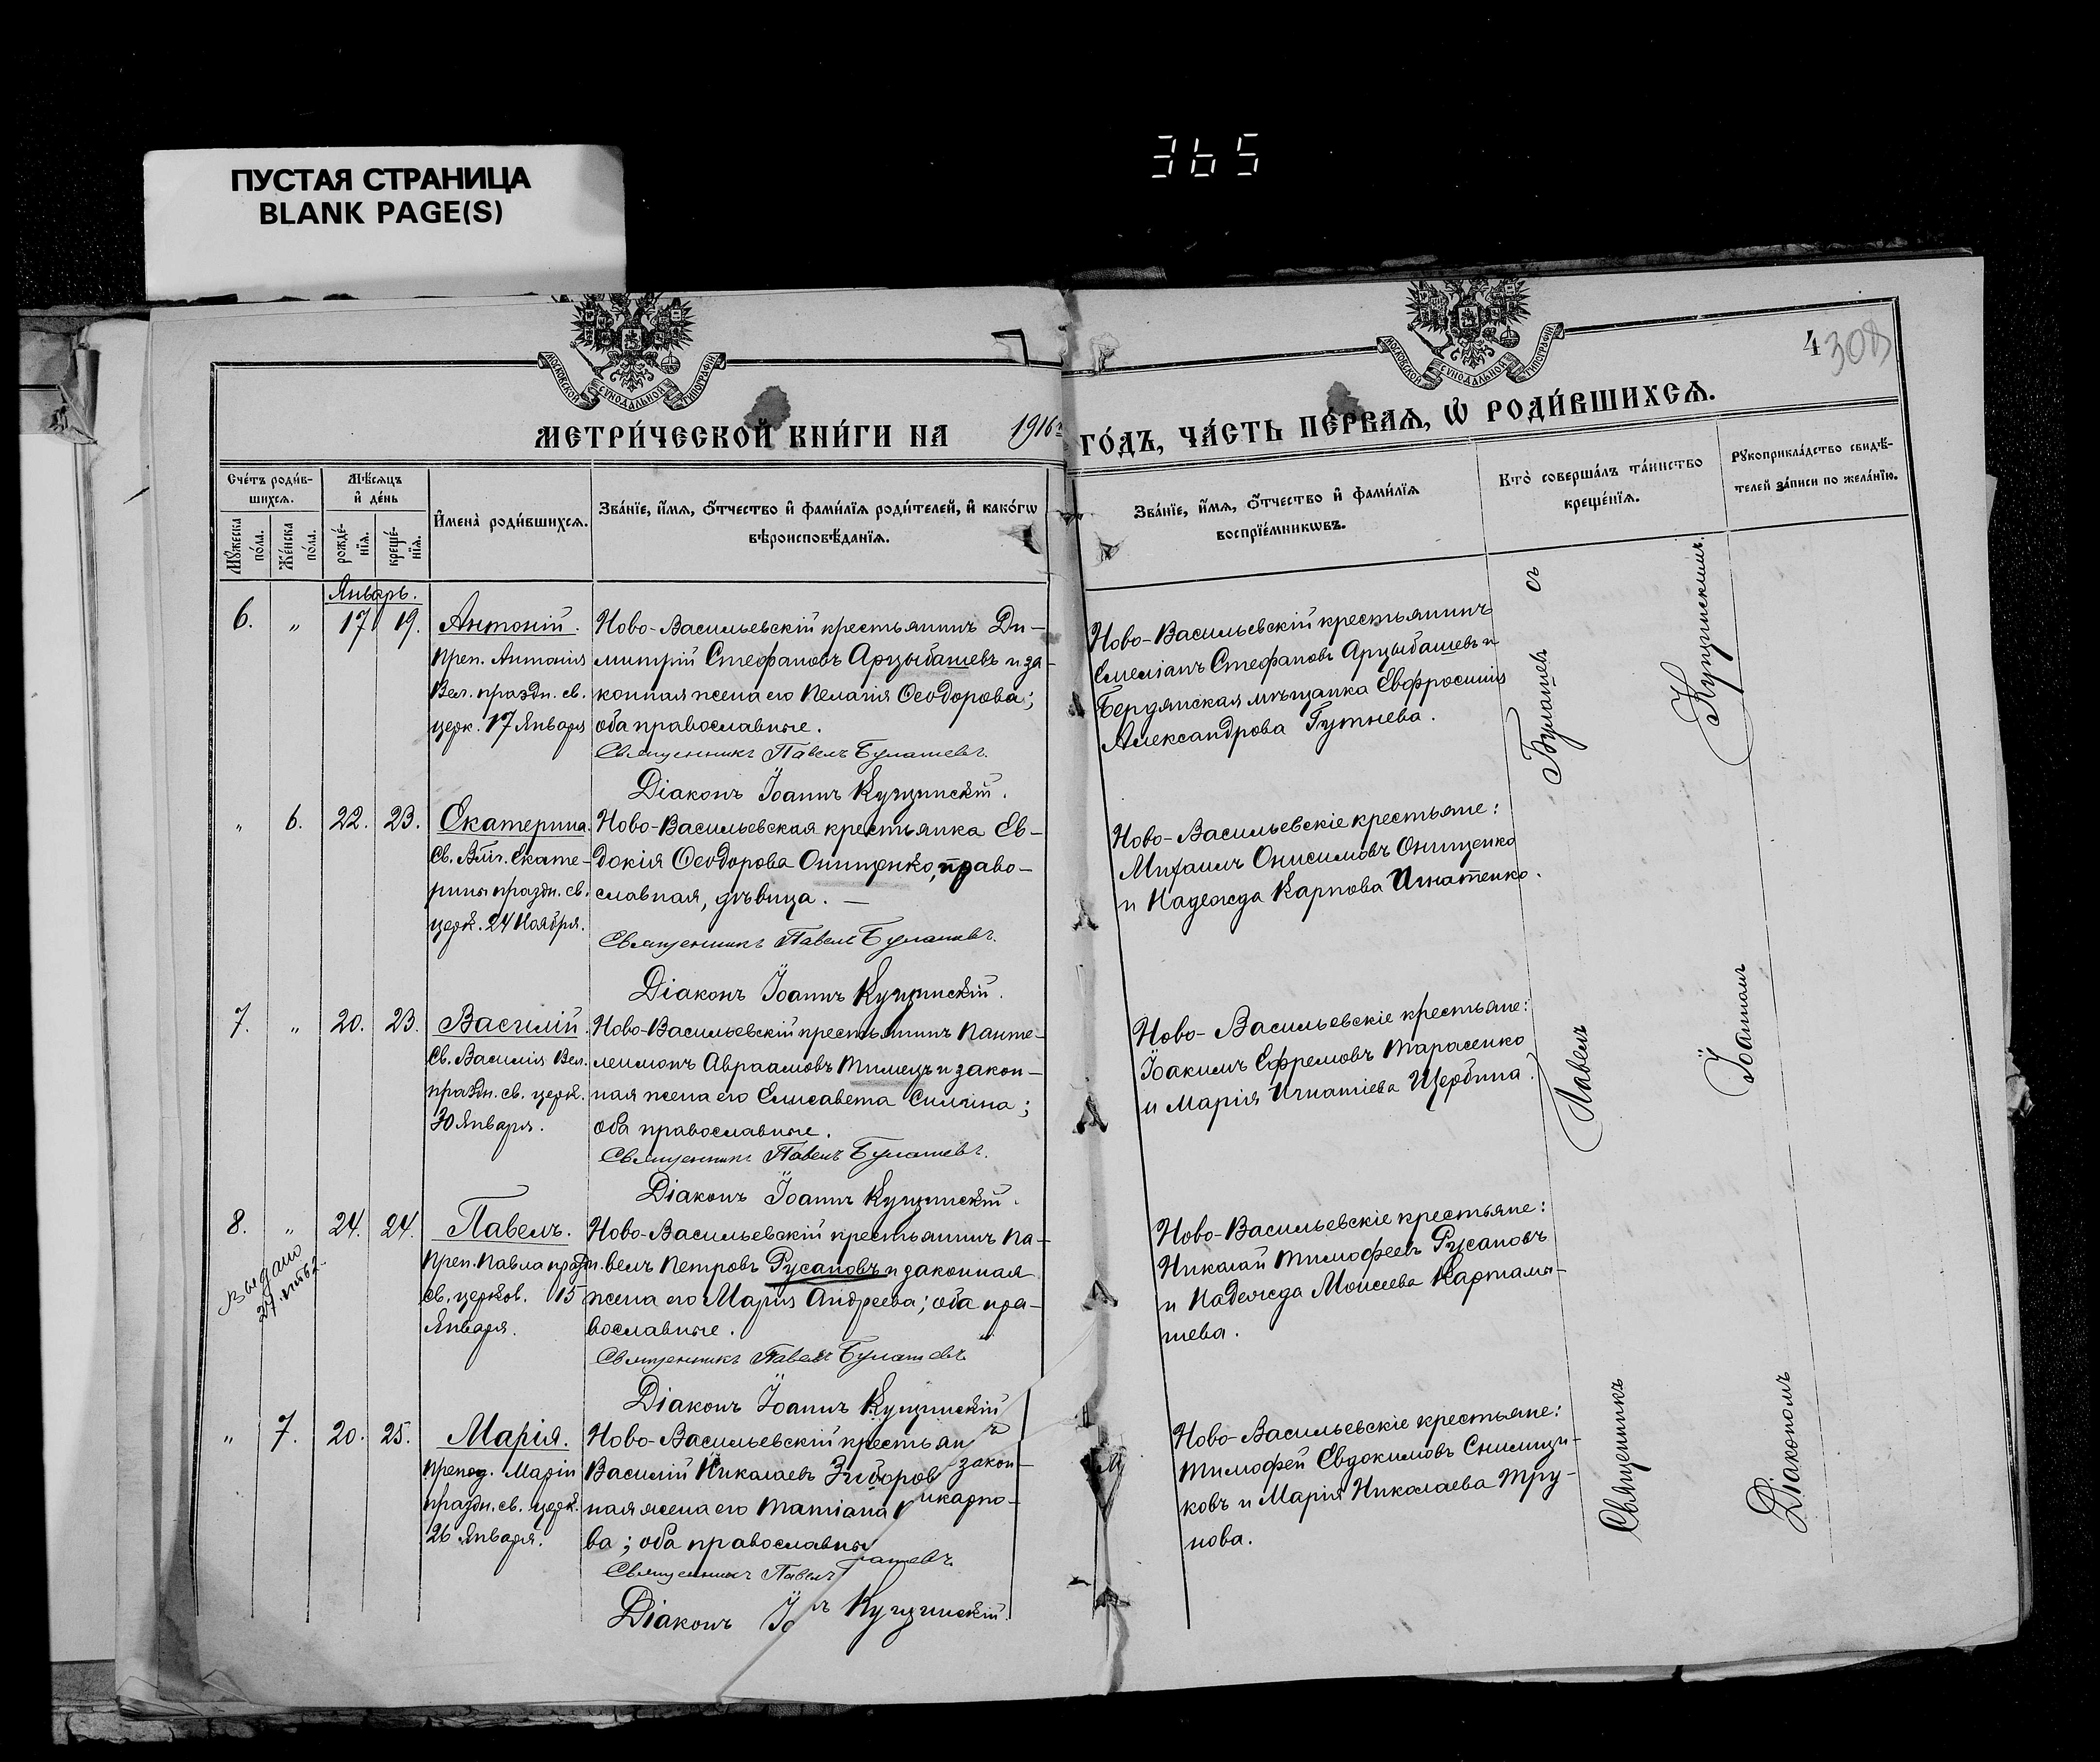 ПУСТАЯ СТРАНИЦА
BLANK PAGE(S)
365
МОСКОВСКОЙ СѴНОДАЛЬНОЙ ТИПОГРАФІИ
МОСКОВСКОЙ СѴНОДАЛЬНОЙ ТИПОГРАФІИ
4
308
МЕТРИ́ЧЕСКОЙ КНИ́ГИ НА 1916 ГО́ДЪ, ЧА́СТЬ ПЕ́РВАѦ, Ѡ҆ РОДИ́ВШИХСѦ.
Сче́тъ роди́в-
шихсѧ.
Мꙋ́жеска по́ла.
Же́нска по́ла.
Мѣ́сѧцъ
и҆ де́нь
рожде́-
нїѧ.
креще́-
нїѧ.
И҆мена̀ роди́вшихсѧ.
Зва́нїе, и҆́мѧ, ѻ҆́тчество и҆ фами́лїѧ роди́телей, и҆ како́гѡ
вѣроисповѣ́данїѧ.
Зва́нїе, и҆́мѧ, ѻ҆́тчество и҆ фами́лїѧ
воспрїе́мникѡвъ.
Кто̀ соверша́лъ та́инство
креще́нїѧ.
Рꙋкоприкла́дство свидѣ́-
телей за́писи по жела́нїю.
Январь.
6. „ 17 19. Антоній.
Преп. Антонія
Вел. праздн. св.
церк. 17 Января
Ново-Васильевскій крестьянинъ Ди-
митрій Стефановъ Арцыбашевъ и за-
конная жена его Пелагія Ѳеодорова;
оба православные.
Священникъ Павелъ Булашевъ.
Діаконъ Іоаннъ Кущинскій.
Ново-Васильевскій крестьянинъ
Емеліанъ Стефановъ Арцыбашевъ и
Бердянская мѣщанка Евфросинія
Александрова Гутнева.
„ 6. 22. 23. Екатерина.
Св. Вмч. Екате-
рины праздн. св.
церк. 24 Ноября.
Ново-Васильевская крестьянка Ев-
докія Ѳеодорова Онищенко, право-
славная, дѣвица. —
Священникъ Павелъ Булашевъ.
Діаконъ Іоаннъ Кущинскій.
Ново-Васильевскіе крестьяне:
Михаилъ Онисимовъ Онищенко
и Надежда Карпова Игнатенко.
7. „ 20. 23. Василій.
Св. Василія Вел.
праздн. св. церк.
30 Января.
Ново-Васильевскій крестьянинъ Панте-
леимонъ Авраамовъ Тимецъ и закон-
ная жена его Елисавета Силина;
оба православные.
Священникъ Павелъ Булашевъ.
Діаконъ Іоаннъ Кущинскій.
Ново-Васильевскіе крестьяне:
Іоакимъ Ефремовъ Тарасенко
и Марія Игнатіева Щербина.
8. „ 24. 24. Павелъ.
Выдано
Преп. Павла праздн.
св. церков. 15
Января.
Ново-Васильевскій крестьянинъ Па-
велъ Петровъ Русановъ и законная
жена его Марія Андреева; оба пра-
вославные.
Священникъ Павелъ Булашевъ
Діаконъ Іоаннъ Кущинскій
Ново-Васильевскіе крестьяне:
Николай Тимофеевъ Русановъ
и Надежда Моисеева Картама-
шева.
„ 7. 20. 25. Марія.
Препод. Маріи
праздн. св. церк.
26 Января.
Ново-Васильевскій крестьян
Василій Николаевъ Зиборов закон-
ная жена его Татіана икарпо-
ва; оба православны
Священникъ Павелъ ашевъ
Діаконъ Іо ъ Кущинскій.
Ново-Васильевскіе крестьяне:
Тимофей Евдокимовъ Снимщи-
ковъ и Марія Николаева Тру-
нова.
Священникъ Павелъ Булашевъ съ
Діакономъ Іоанномъ Кущинскимъ.